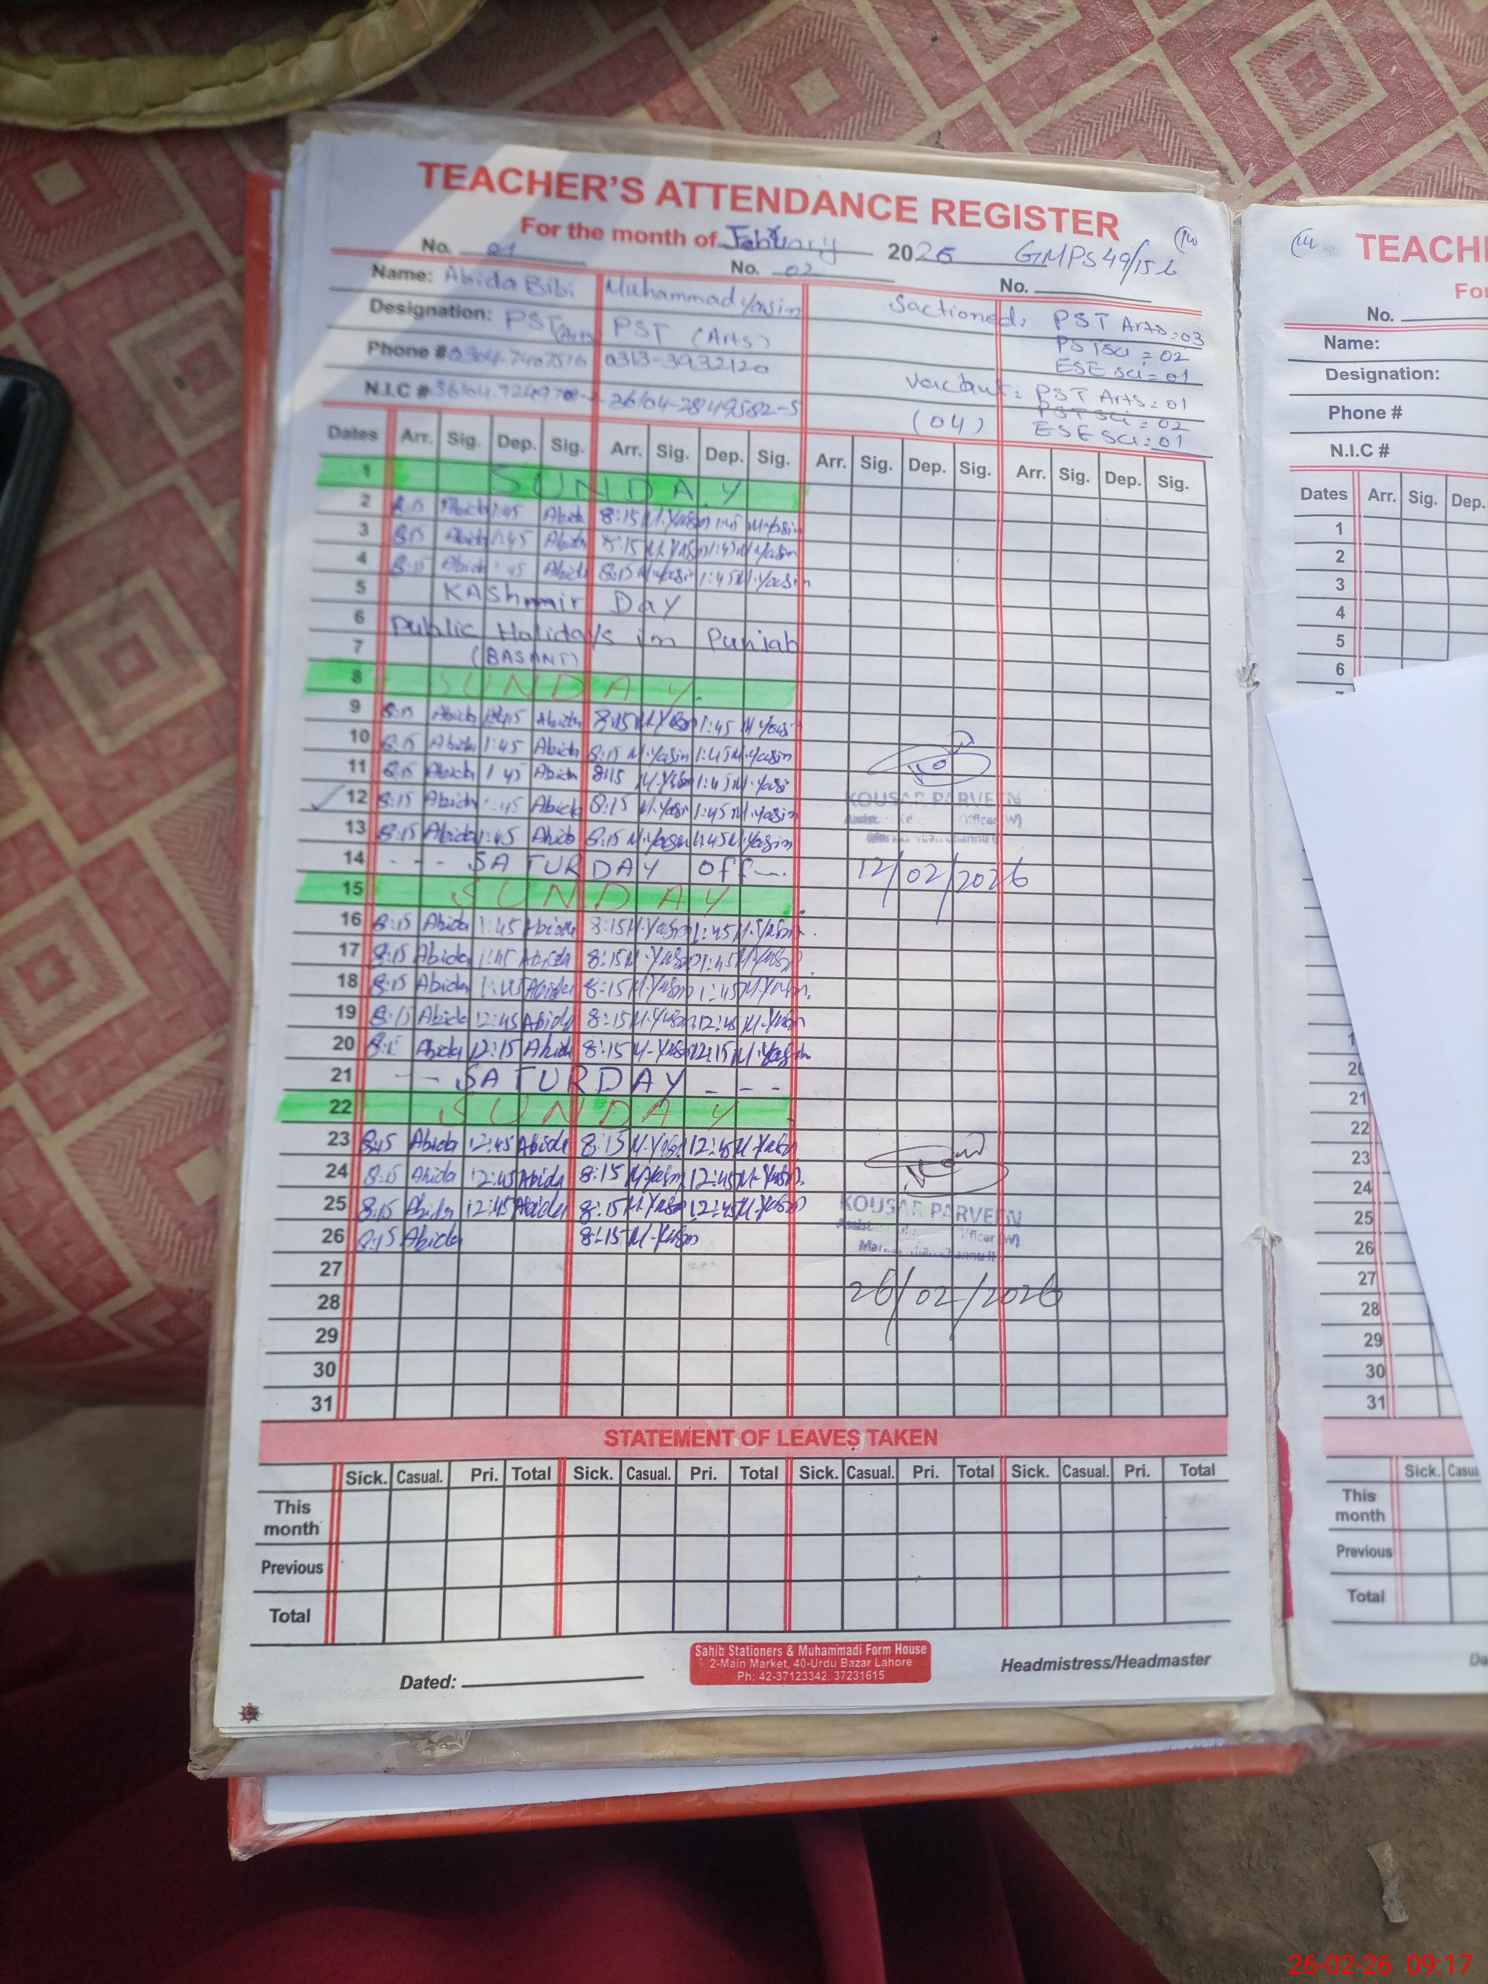 TEACHER'S ATTENDANCE REGISTER
For the month of February 2026 GMPS 49/15-L
No. 01 No. 02 No.
Name: Abida Bibi Muhammad Yasin
Designation: PST (Arts) PST (Arts)
Phone # 0313-3932120
N.I.C #
Sactioned: PST Arts:03
PST Sci = 02
ESE Sci = 01
Vacant: PST Arts:01
(04) PST Sci = 02
ESE Sci:01
Dates Arr. Sig. Dep. Sig. Arr. Sig. Dep. Sig. Arr. Sig. Dep. Sig. Arr. Sig. Dep. Sig.
1 SUNDAY
2 8:15 Abida 1:45 Abida 8:15 M.Yasin 1:45 M.Yasin
3 8:15 Abida 1:45 Abida 8:15 M.Yasin 1:45 M.Yasin
4 8:15 Abida 1:45 Abida 8:15 M.Yasin 1:45 M.Yasin
5 KAShmir Day
6 Public Holidays in Punjab
7 (BASANT)
8 SUNDAY
9 8:15 Abida 1:45 Abida 8:15 M.Yasin 1:45 M.Yasin
10 8:15 Abida 1:45 Abida 8:15 M.Yasin 1:45 M.Yasin
11 8:15 Abida 1:45 Abida 8:15 M.Yasin 1:45 M.Yasi
12 8:15 Abida 1:45 Abida 8:15 M.Yasi 1:45 M.Yasin
13 8:15 Abida 1:45 Abida 8:15 M.Yasin 1:45 M.Yasin
14 --- SATURDAY Off--.
15 SUNDAY
16 8:15 Abida 1:45 Abida 8:15 M.Yasin 1:45 M.Yasin
17 8:15 Abida 1:45 Abida 8:15 M.Yasin 1:45 M.Yasin
18 8:15 Abida 1:45 Abida 8:15 M.Yasin 1:45 M.Yasin
19 8:15 Abida 12:45 Abida 8:15 M.Yasin 12:45 M.Yasin
20 8:15 Abida 12:15 Abida 8:15 M.Yasin 12:15 M.Yasin
21 -- SATURDAY ---
22 SUNDAY
23 8:15 Abida 12:45 Abida 8:15 M.Yasin 12:45 M.Yasin
24 8:15 Abida 12:45 Abida 8:15 M.Yasin 12:45 M.Yasin
25 8:15 Abida 12:45 Abida 8:15 M.Yasin 12:45 M.Yasin
26 8:15 Abida 8:15 M.Yasin
27
28
29
30
31
KOUSAR PARVEEN
Officer (W)
12/02/2026
KOUSAR PARVEEN
Officer (W)
26/02/2026
STATEMENT OF LEAVES TAKEN
Sick. Casual. Pri. Total Sick. Casual. Pri. Total Sick. Casual. Pri. Total Sick. Casual. Pri. Total
This month
Previous
Total
Dated:
Sahib Stationers & Muhammadi Form House
2-Main Market, 40-Urdu Bazar Lahore
Ph: 42-37123342, 37231615
Headmistress/Headmaster
TEACH
For
No.
Name:
Designation:
Phone #
N.I.C #
Dates Arr. Sig. Dep.
1
2
3
4
5
6
20
21
22
23
24
25
26
27
28
29
30
31
Sick. Casua
This month
Previous
Total
26-02-26 09:17